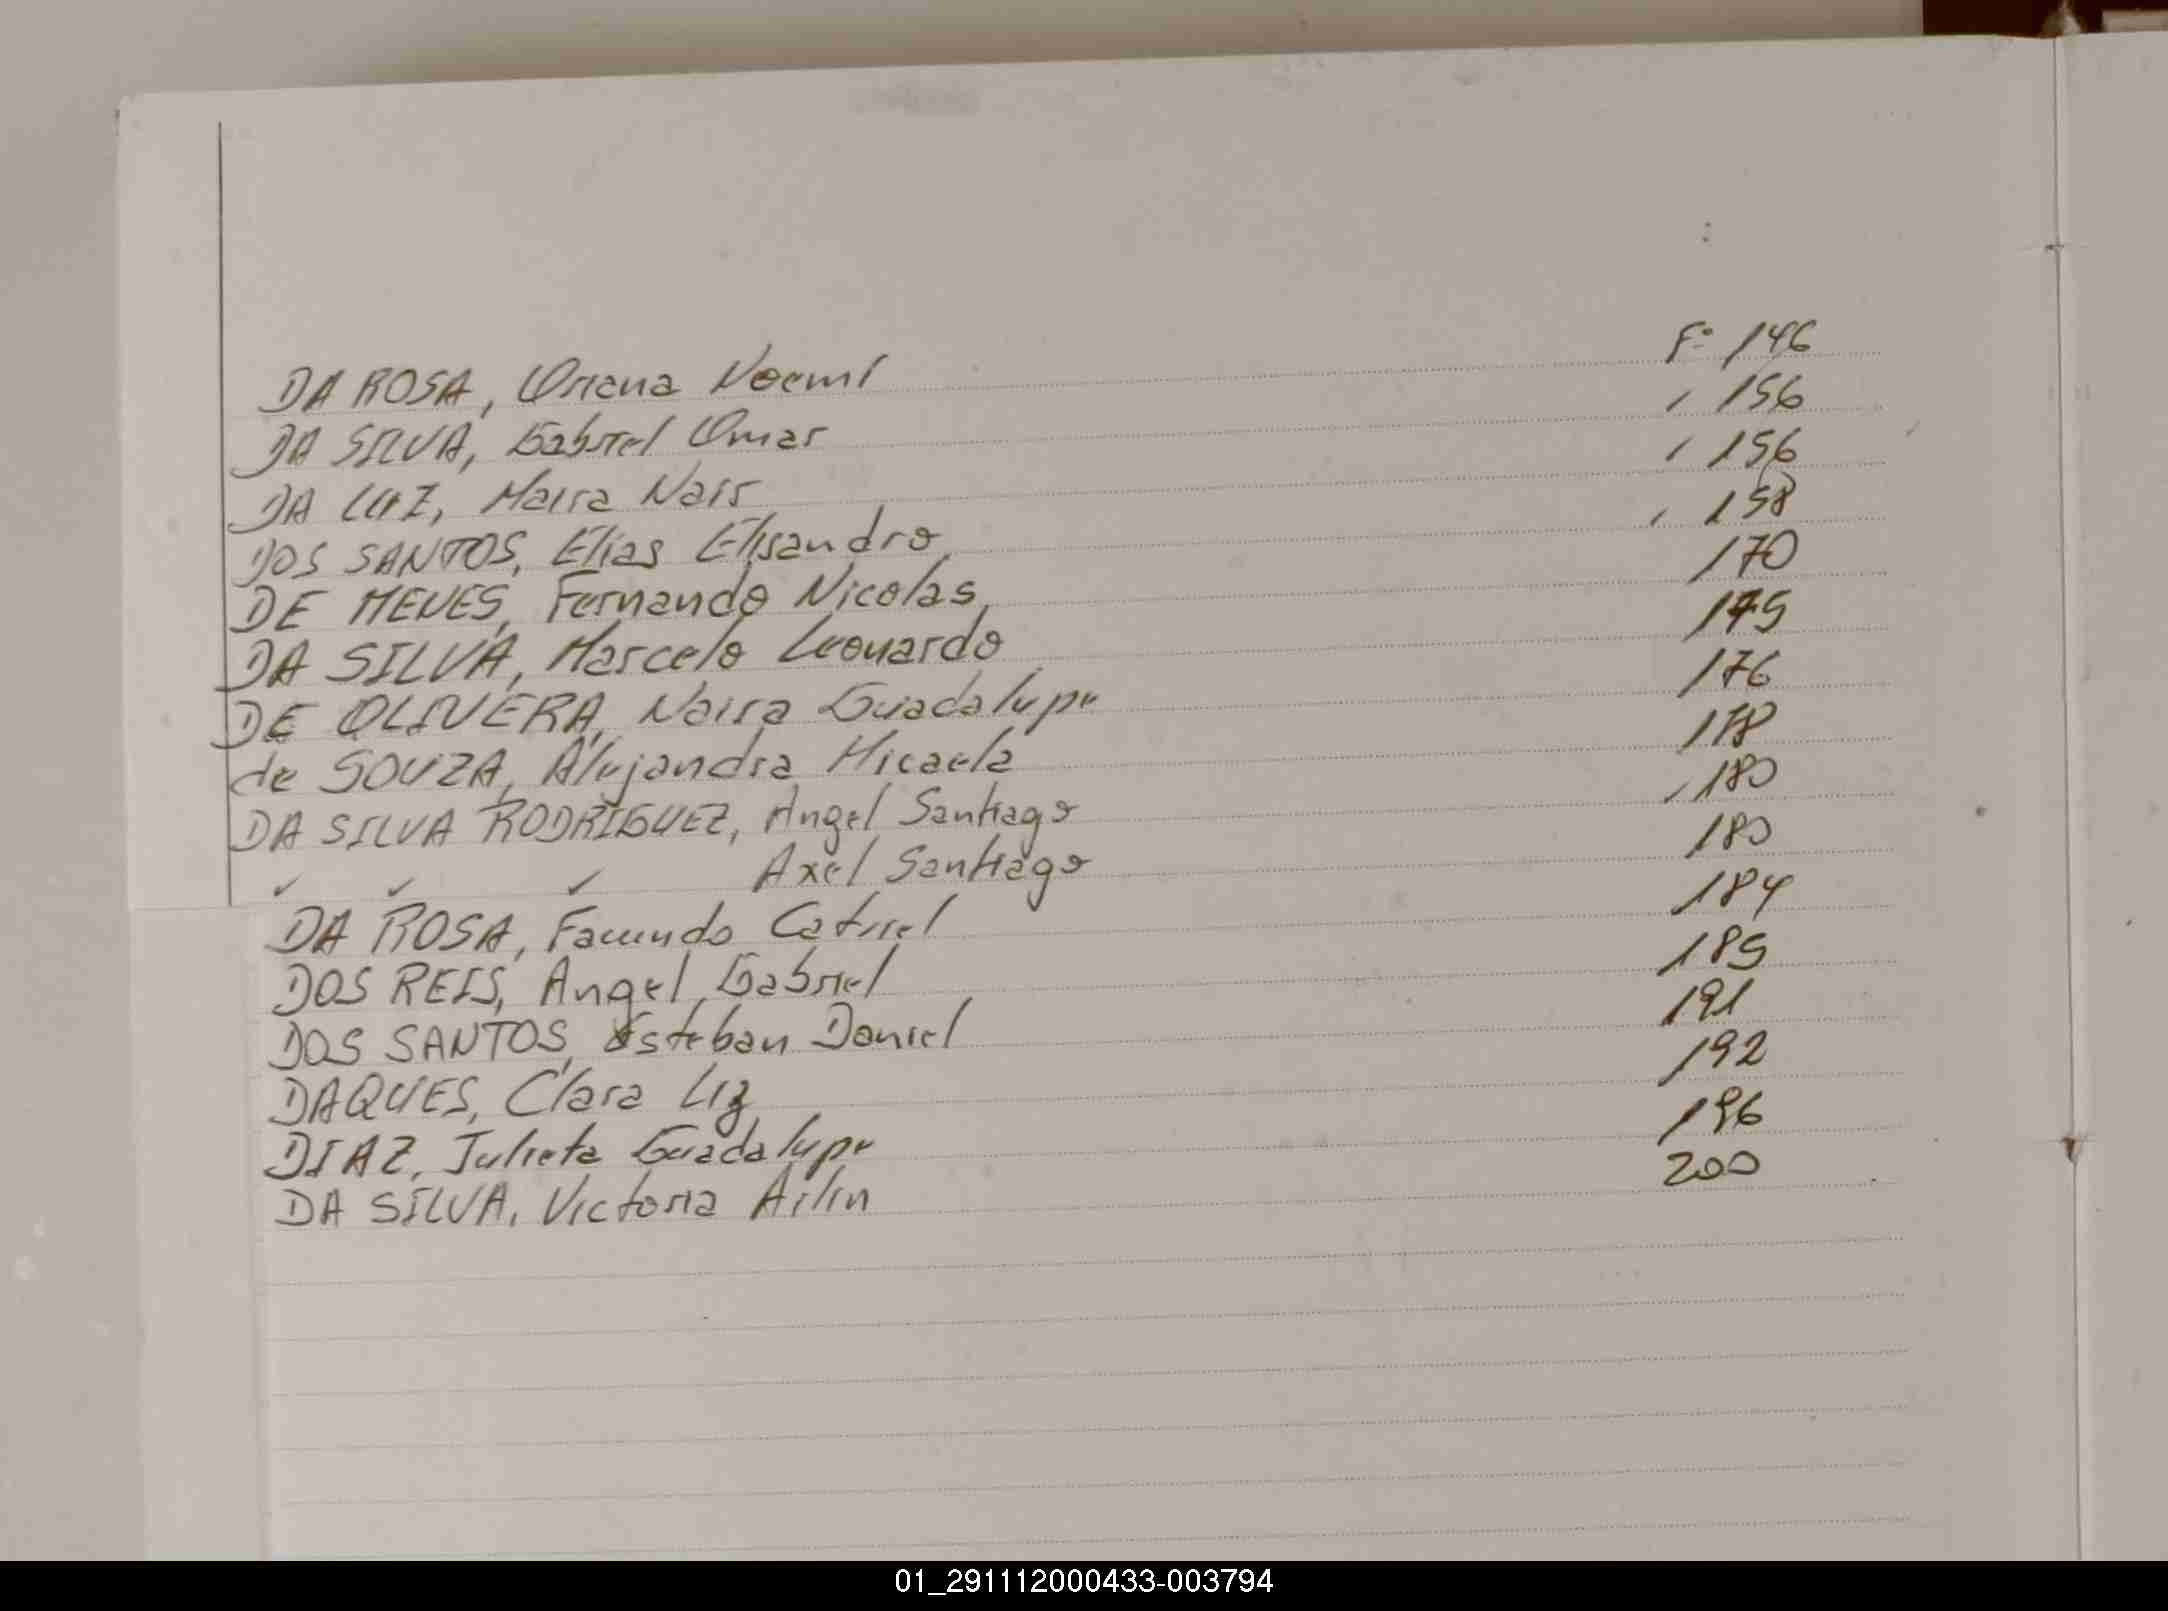 DA ROSA, Oriana Noemí F° 146
DA SILVA, Gabriel Omar , 156
DA LUZ, Maira Nair , 156
DOS SANTOS, Elias Elisandro , 158
DE MENES, Fernando Nicolas 170
DA SILVA, Marcelo Leonardo 175
DE OLIVERA, Naira Guadalupe 176
de SOUZA, Alejandra Micaela 178
DA SILVA RODRIGUEZ, Angel Santiago , 180
✓ ✓ ✓ Axel Santiago 180
DA ROSA, Facundo Catriel 184
DOS REIS, Angel Gabriel 185
DOS SANTOS, Esteban Daniel 191
DAQUES, Clara Liz 192
DIAZ, Julieta Guadalupe 196
DA SILVA, Victoria Ailin 200
01_291112000433-003794